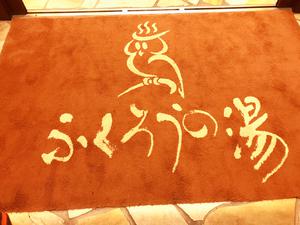 ふくろうの湯